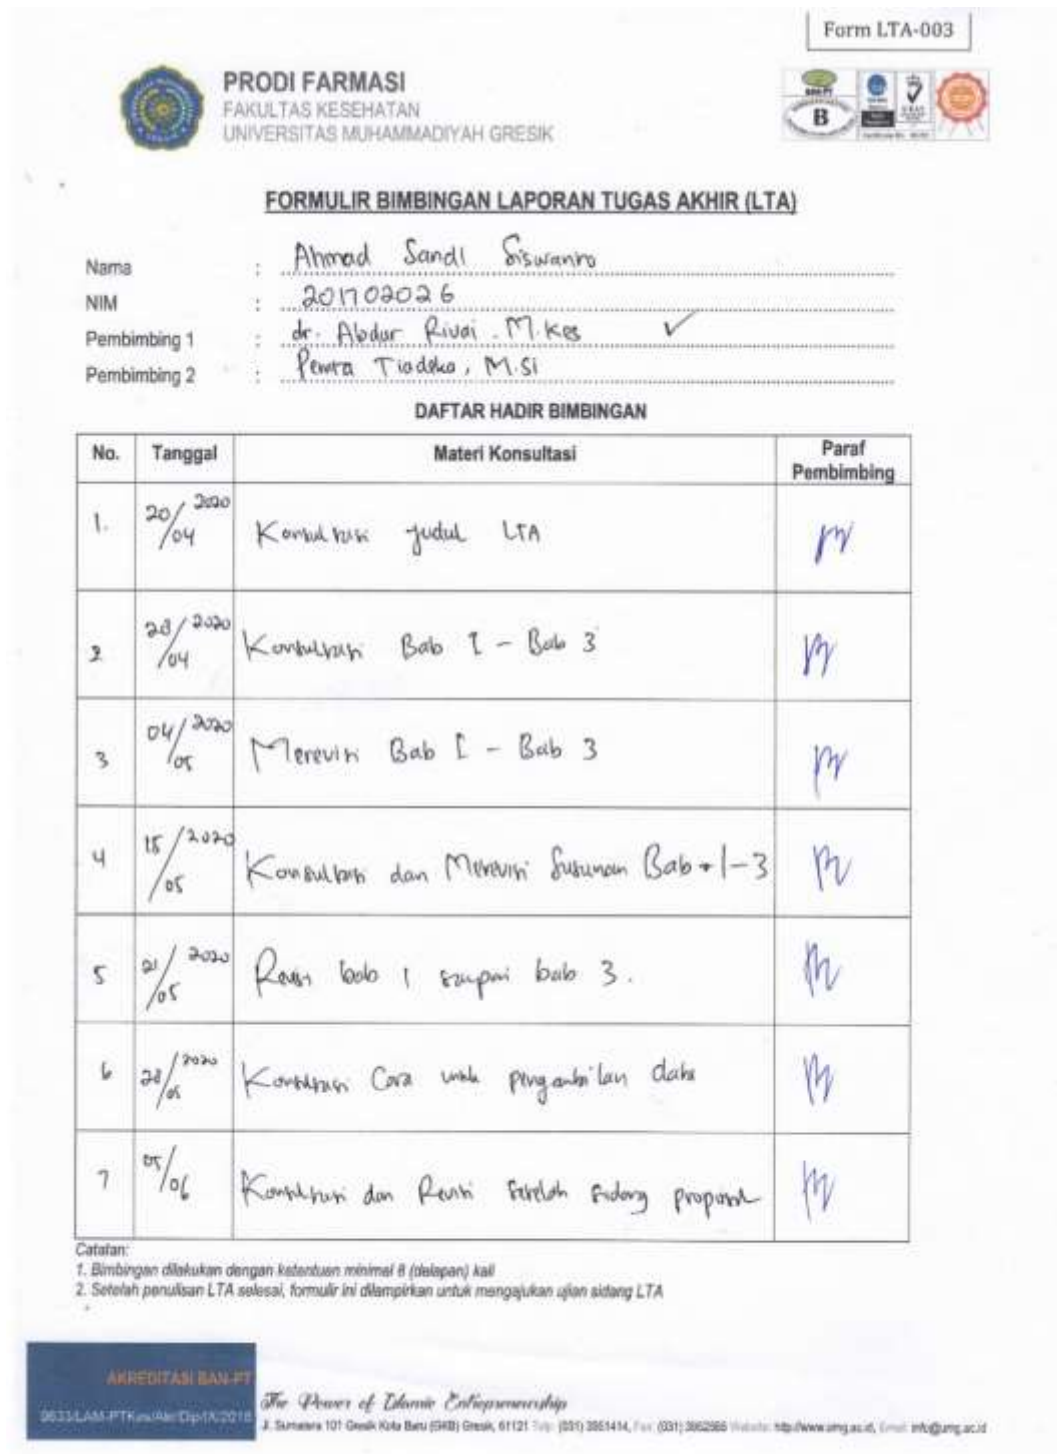 Form LTA-003
PRODI FARMASI
FAKULTAS KESEHATAN
UNIVERSITAS MUHAMMADIYAH GRESIK
B
FORMULIR BIMBINGAN LAPORAN TUGAS AKHIR (LTA)
Nama : Ahmad Sandi Siswanto
NIM : 201702026
Pembimbing 1 : dr. Abdur Rivai. M.Kes ✓
Pembimbing 2 : Pemta Tiadeka, M.Si
DAFTAR HADIR BIMBINGAN
No. Tanggal Materi Konsultasi Paraf Pembimbing
1. 20/04 2020 Konsultasi judul LTA
2 28/04 2020 Konsultasi Bab I - Bab 3
3 04/05 2020 Merevisi Bab I - Bab 3
4 15/05 2020 Konsultasi dan Merevisi Susunan Bab 1-3
5 21/05 2020 Revisi bab 1 sampai bab 3.
6 28/05 2020 Konsultasi Cara untuk pengambilan data
7 05/06 Konsultasi dan Revisi setelah sidang proposal
Catatan:
1. Bimbingan dilakukan dengan ketentuan minimal 8 (delapan) kali
2. Setelah penulisan LTA selesai, formulir ini dilampirkan untuk mengajukan ujian sidang LTA
AKREDITASI BAN-PT
The Power of Islamic Entrepreneurship
Jl. Sumatera 101 Gresik Kota Baru (GKB) Gresik, 61121 Telp: (031) 3951414, Fax: (031) 3952585 Website: http://www.umg.ac.id, Email: info@umg.ac.id